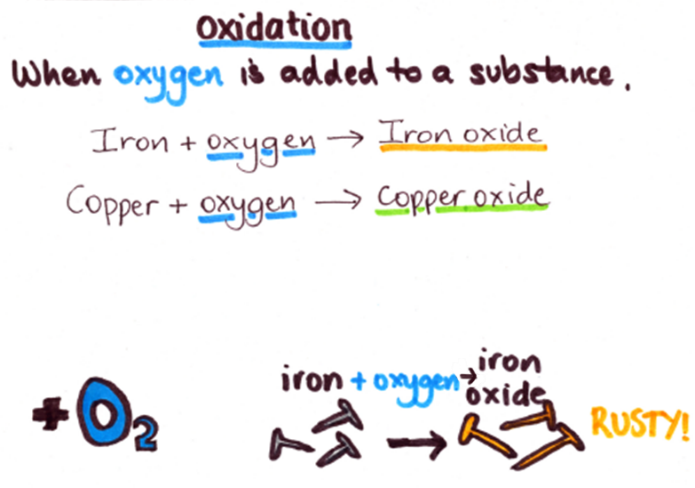 oxidation
When oxygen is added to a substance.
Iron + oxygen → Iron oxide
Copper + oxygen → Copper oxide
+O₂
iron + oxygen → iron
oxide
RUSTY!